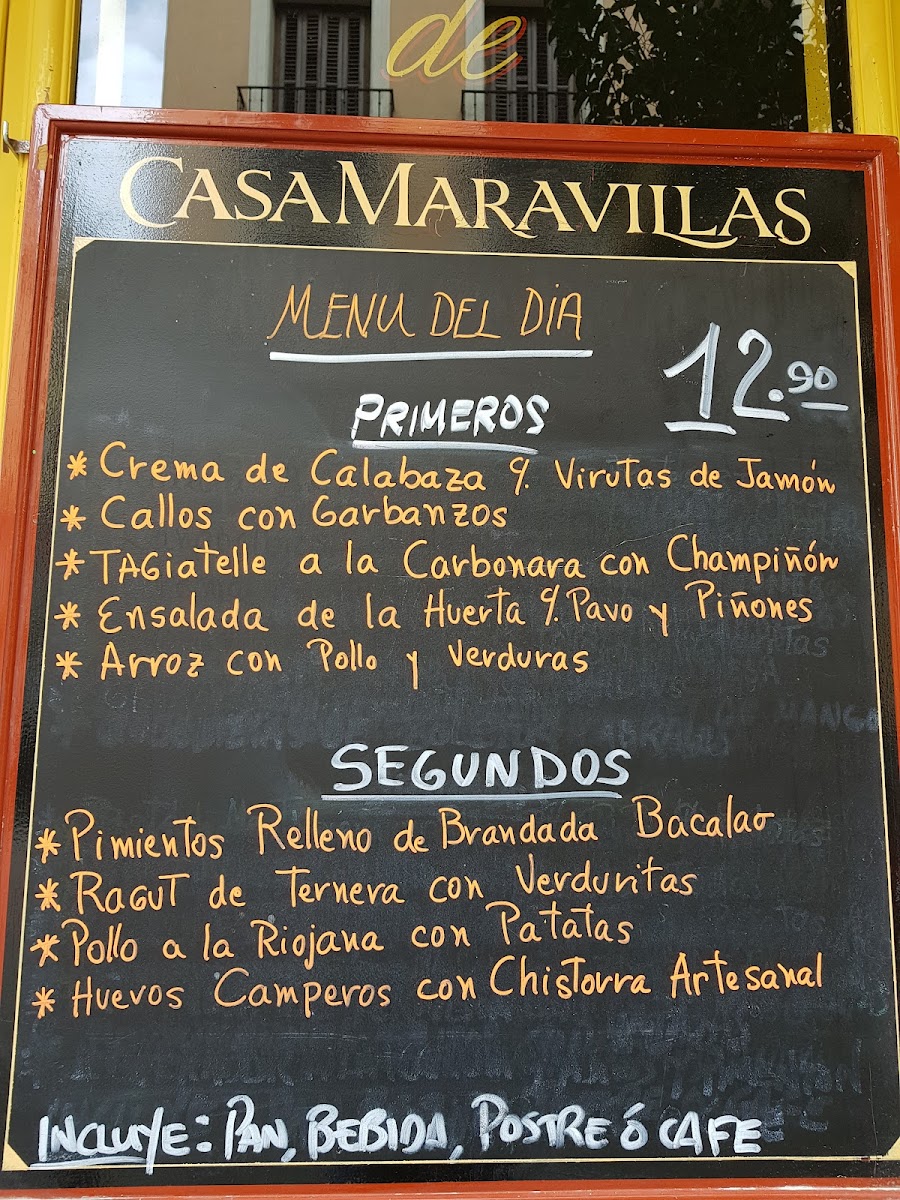 de
CASA MARAVILLAS
MENU DEL DIA
12.90
PRIMEROS
* Crema de Calabaza c/. Virutas de Jamón
* Callos con Garbanzos
* TAGiatelle a la Carbonara con Champiñón
* Ensalada de la Huerta c/. Pavo y Piñones
* Arroz con Pollo y Verduras
SEGUNDOS
* Pimientos Relleno de Brandada Bacalao
* RAGUT de Ternera con Verduritas
* Pollo a la Riojana con Patatas
* Huevos Camperos con Chistorra Artesanal
INCLUYE: PAN, BEBIDA, POSTRE Ó CAFE